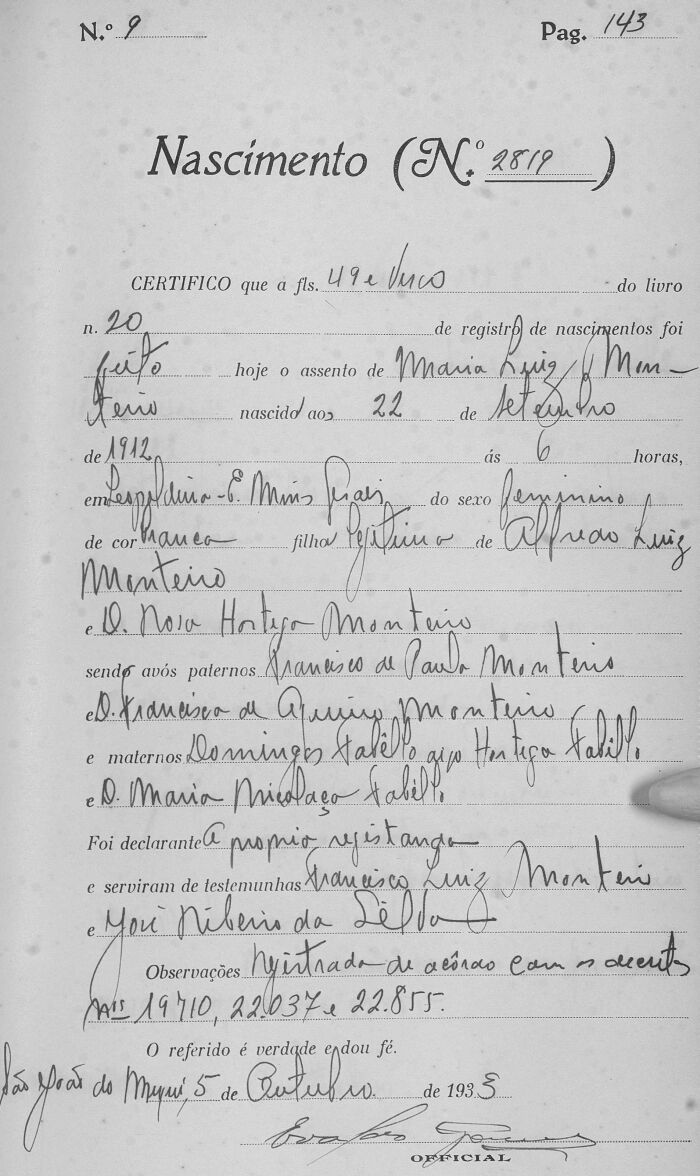 N.º 9 Pag. 143
Nascimento (N.º 2819)
CERTIFICO que a fls. 49 e Verso do livro
n. 20 de registro de nascimentos foi
feito hoje o assento de Maria Luiza Mon-
teiro nascido aos 22 de Setembro
de 1912 ás 6 horas,
em Leopoldina - E. Minas Gerais do sexo feminino
de cor branca filha legitima de Alfredo Luiz
Monteiro
e D. Rosa Hortega Monteiro
sendo avós paternos Francisco de Paula Monteiro
e D. Francisca de Aquino Monteiro
e maternos Domingos Fabéllo Hortega Fabéllo
e D. Maria Nicolaça Fabéllo
Foi declarante A propria registanda
e serviram de testemunhas Francisco Luiz Monteiro
e José Ribeiro da Silva
Observações Registrada de acôrdo com os decretos
nrs 19710, 22.037 e 22.855.
O referido é verdade e dou fé.
São João do Meriti, 5 de Outubro de 1933
OFFICIAL